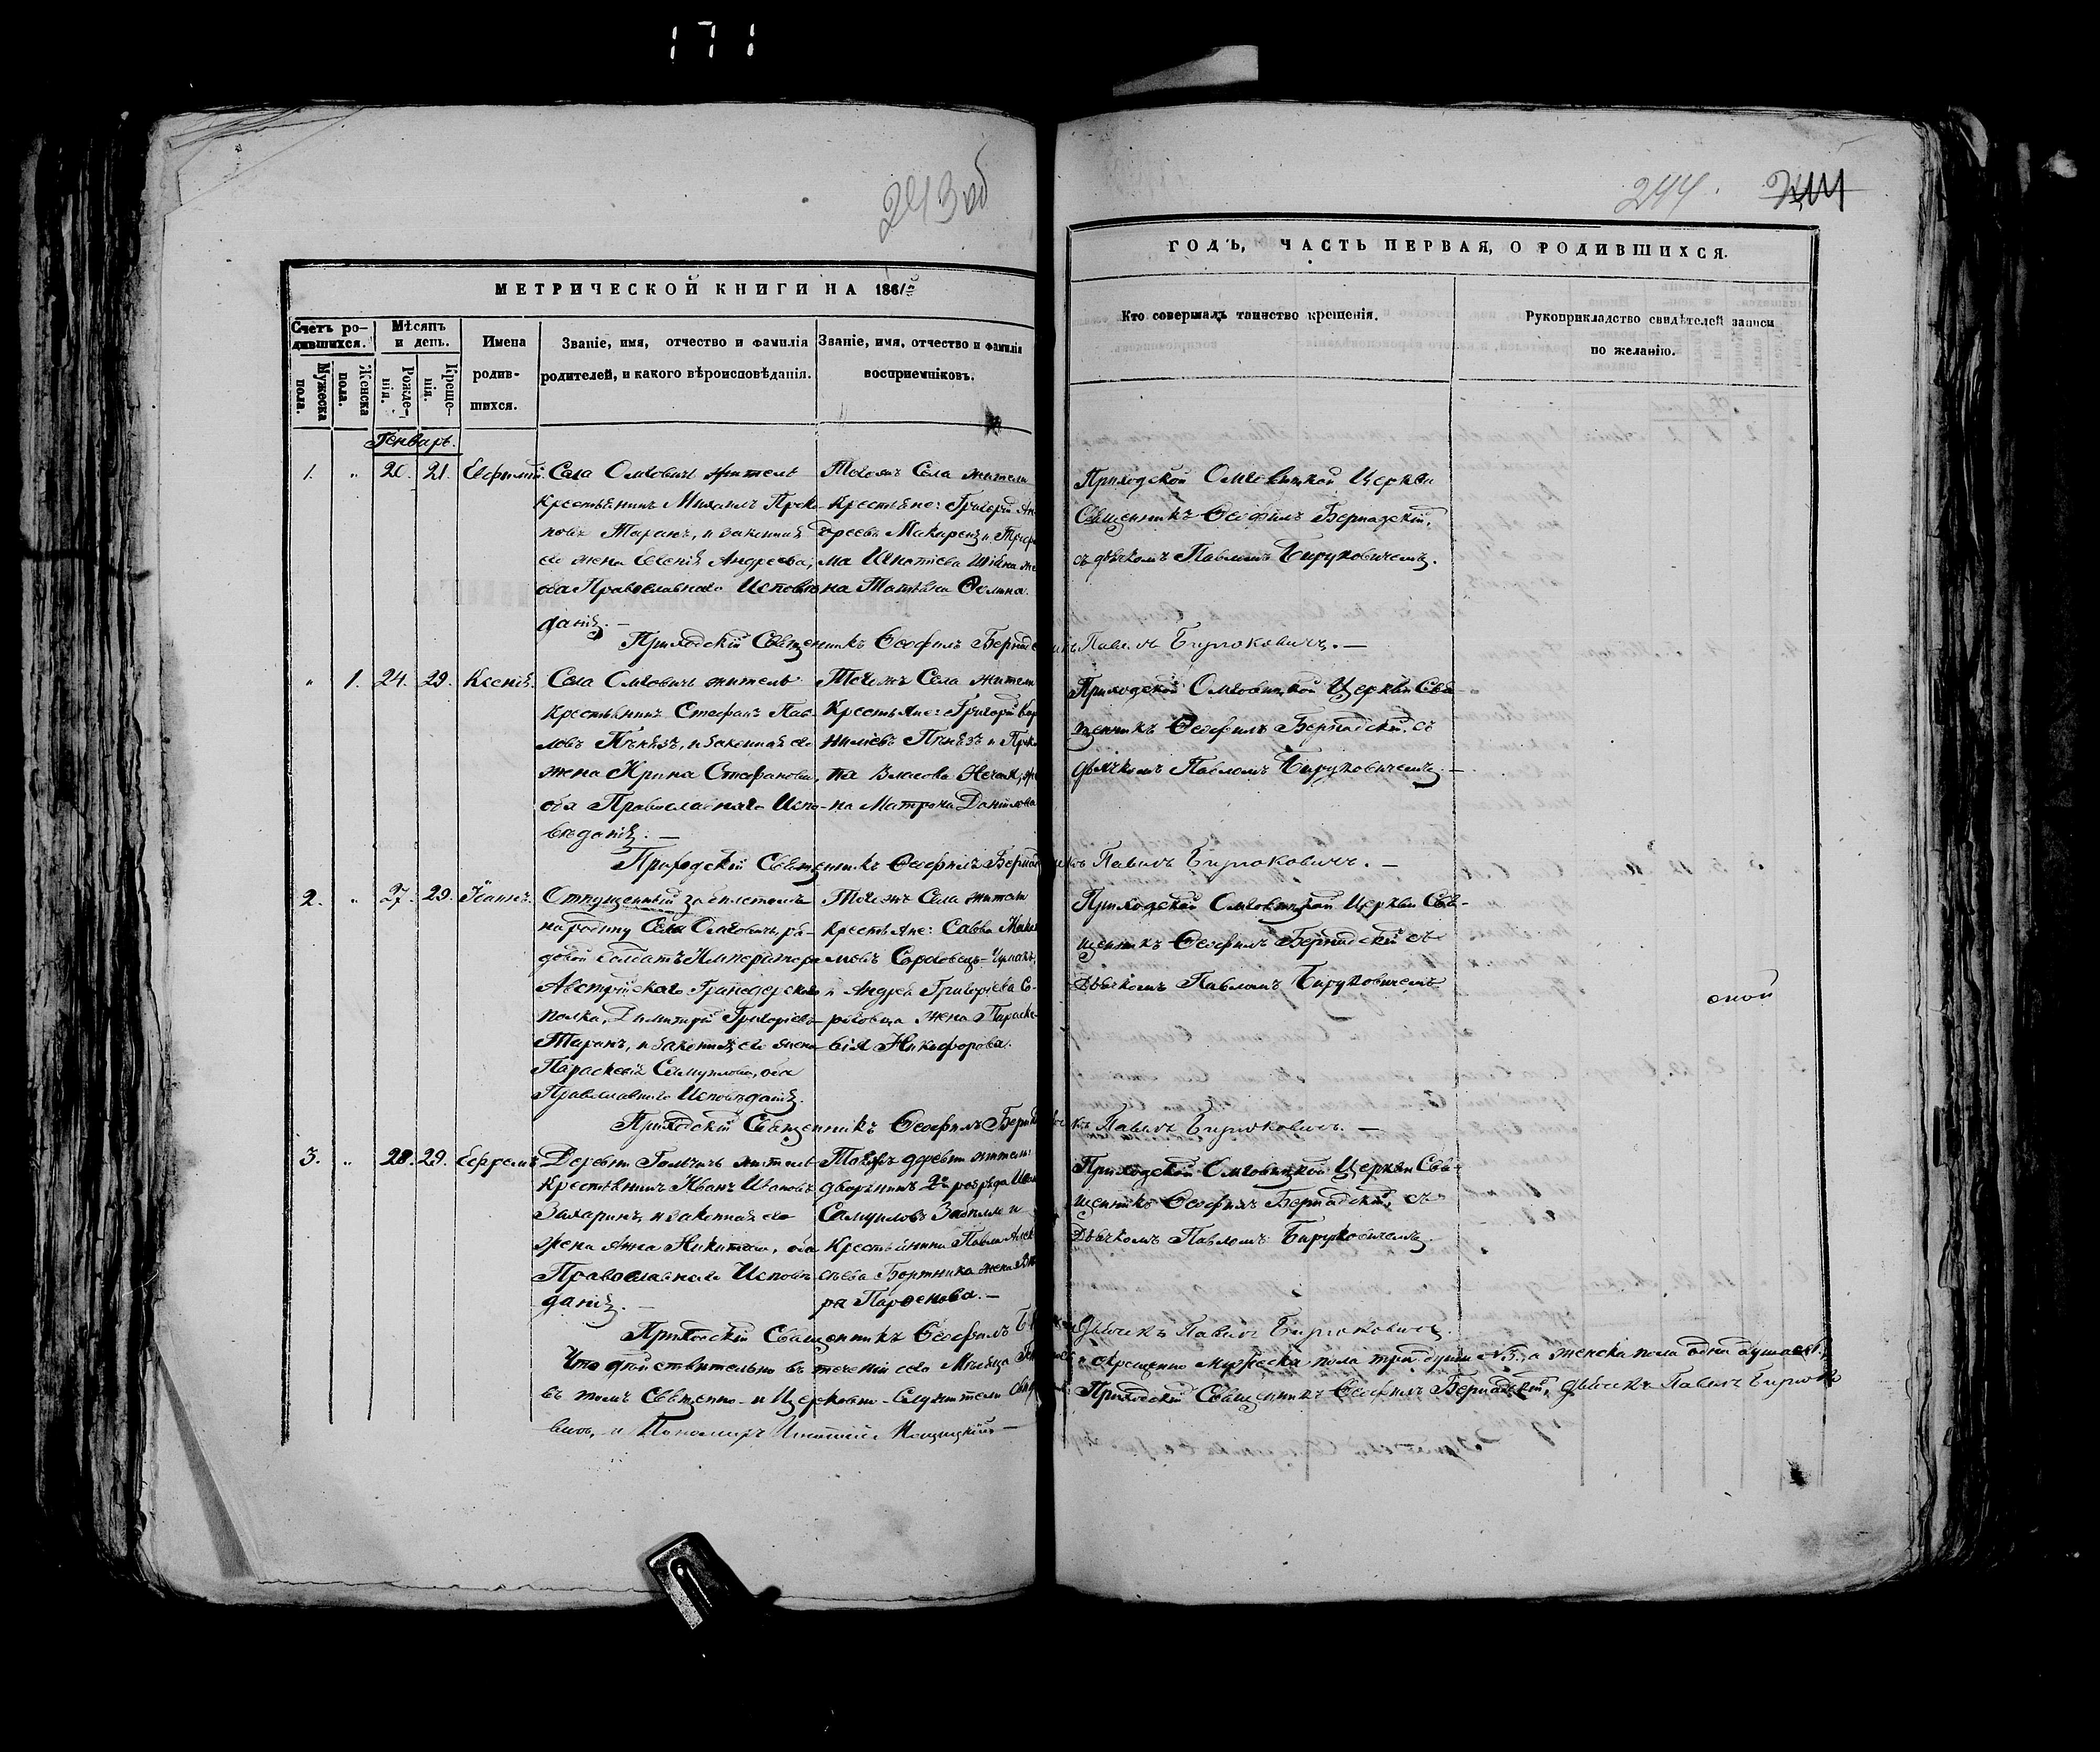 171
243 об
244.
МЕТРИЧЕСКОЙ КНИГИ НА 186
ГОДЪ, ЧАСТЬ ПЕРВАЯ, О РОДИВШИХСЯ.
Счетъ ро-
дившихся.
Мужеска пола.
Женска пола.
Мѣсяцъ
и день.
Рожде-
нія.
Креще-
нія.
Имена
родив-
шихся.
Званіе, имя, отчество и фамилія
родителей, и какого вѣроисповѣданія.
Званіе, имя, отчество и фамилія
воспріемниковъ.
Кто совершалъ таинство крещенія.
Рукоприкладство свидѣтелей записи
по желанію.
Генварь.
1. " 20. 21. Евфимій.
Села Омговичъ житель
Крестьянинъ Михаилъ Проко-
повъ Таранъ, и законная
его жена Евгенія Андреева,
оба Православнаго Исповѣ-
данія. —
Тогожъ Села жители
Крестьяне: Григорій Ан-
дреевъ Макарен и
ма Игнатіева
на Татіана Ѳомина.
Приходской Омговицкой Церкви
Священникъ Ѳеофилъ Бернадскій,
съ дьячкомъ Павломъ Бируковичемъ.
Приходскій Священникъ Ѳеофилъ Бернадскій
Павелъ Бируковичъ. —
" 1. 24. 29. Ксенія.
Села Омговичъ житель
Крестьянинъ Стефанъ Пав-
ловъ Пѣнязь, и законная его
жена Ирина Стефанова,
оба Православнаго Испо-
вѣданія. —
Тогожъ Села жители
Крестьяне: Григорій Кор-
ниліевъ Пѣнязь и
Власова
на Матрона Даніилова
Приходской Омговицкой Церкви Свя-
щенникъ Ѳеофилъ Бернадскій, съ
дьячкомъ Павломъ Бируковичемъ. —
Приходскій Священникъ Ѳеофилъ Бернад
Павелъ Бируковичъ. —
2. " 27. 29. Іоаннъ.
Отпущенный за билетомъ
на родину Села Омговичъ, ря-
довой солдатъ Императора
Австрійскаго Гранодерскаго
полка, Димитрій Григоріевъ
Таранъ, и законная его жена
Параскевія Самуилова, оба
Православнаго Исповѣданія.
Тогожъ Села жители
Крестьяне: Савва
и Андрея Григоріева Со-
роговца жена Параске-
вія Никифорова.
Приходской Омговицкой Церкви Свя-
щенникъ Ѳеофилъ Бернадскій съ
Дьячкомъ Павломъ Бируковичемъ
Приходскій Священникъ Ѳеофилъ Бернад
Павелъ Бируковичъ. —
3. " 28. 29. Ефремъ.
Деревни житель
Крестьянинъ Иванъ Ивановъ
Захаринъ, и законная его
жена Анна Никитина, оба
Православнаго Исповѣ-
данія. —
Тойже деревни житель
дворянинъ 2го розряда
Самуиловъ и
Крестьянина Павла Алек-
сѣева Бортника жена
ра Парѳенова. —
Приходской Омговицкой Церкви Свя-
щенникъ Ѳеофилъ Бернадскій, съ
Дьячкомъ Павломъ Бируковичемъ.
Приходскій Священникъ Ѳеофилъ
Дьячекъ Павелъ Бируковичъ.
Что дѣйствительно въ теченіи сего Мѣсяца крещенно мужеска пола три души №3, а женска пола одна душа №1,
въ томъ Священно- и Церковно-Служители Приходскій Священникъ Ѳеофилъ Бернадскій, дьячекъ Павелъ Бируко-
вичъ, и Пономарь